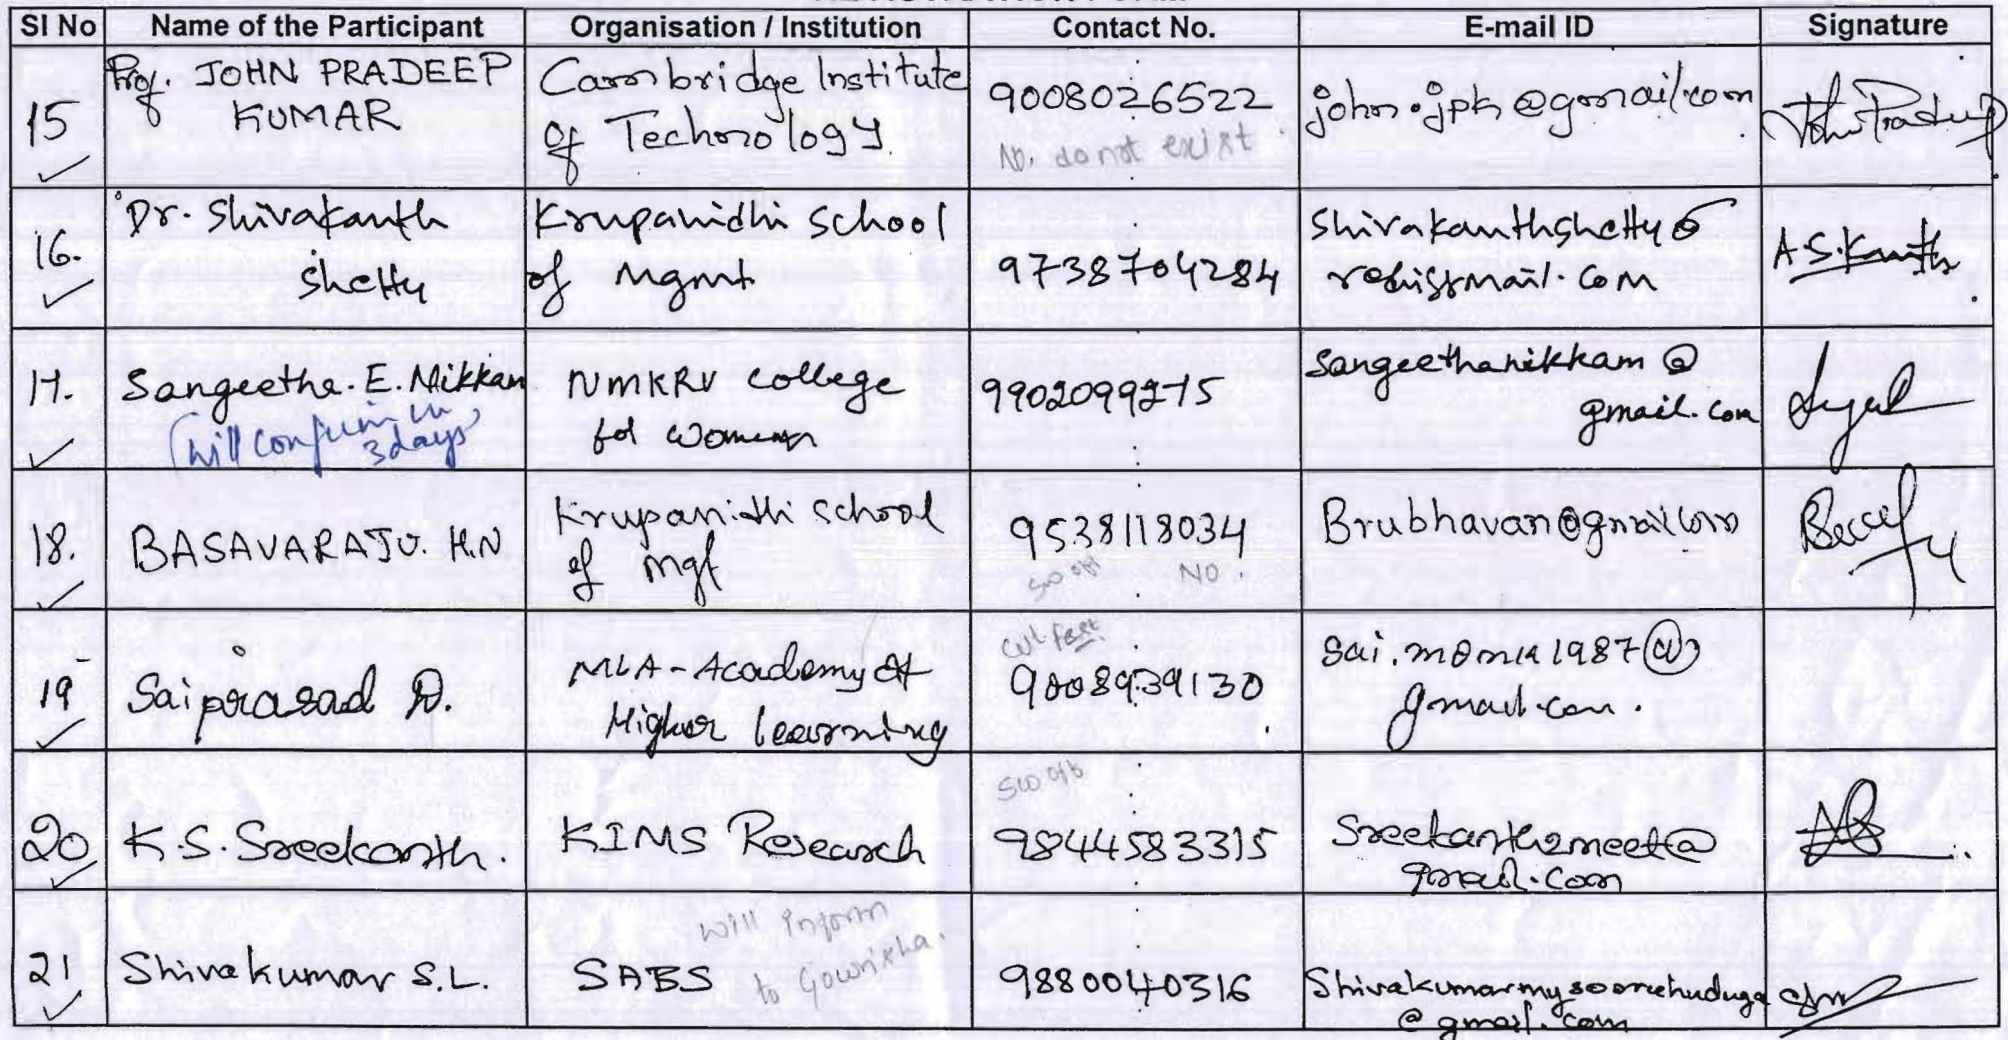 SI No Name of the Participant Organisation / Institution Contact No. E-mail ID Signature
15 Prof. JOHN PRADEEP KUMAR
Cambridge Institute of Technology
9008026522
No. do not exist
john.jpk@gmail.com
John Pradeep
16. Dr. Shivakanth Shetty
Krupanidhi School of Mgmt
9738704284
shivakanthshetty@
rediffmail.com
A.S.Kanth
17. Sangeetha.E.Nikkam
(will confirm in 3 days)
NMKRV College for Women
9902099275
sangeethanikkam@
gmail.com
18. BASAVARAJU. H.N
Krupanidhi School of Mgt
9538118034
sw off NO.
Brubhavan@gmail.com
19 Saiprasad D.
MLA - Academy of Higher learning
9008939130
sai.momia1987@
gmail.com.
20 K.S. Sreekanth.
KIMS Research
sw off
9844583315
Sreekanth2meet@
gmail.com
21 Shivakumar S.L.
SABS
will inform
to
9880040316
Shivakumarmysooruhuduga
@gmail.com